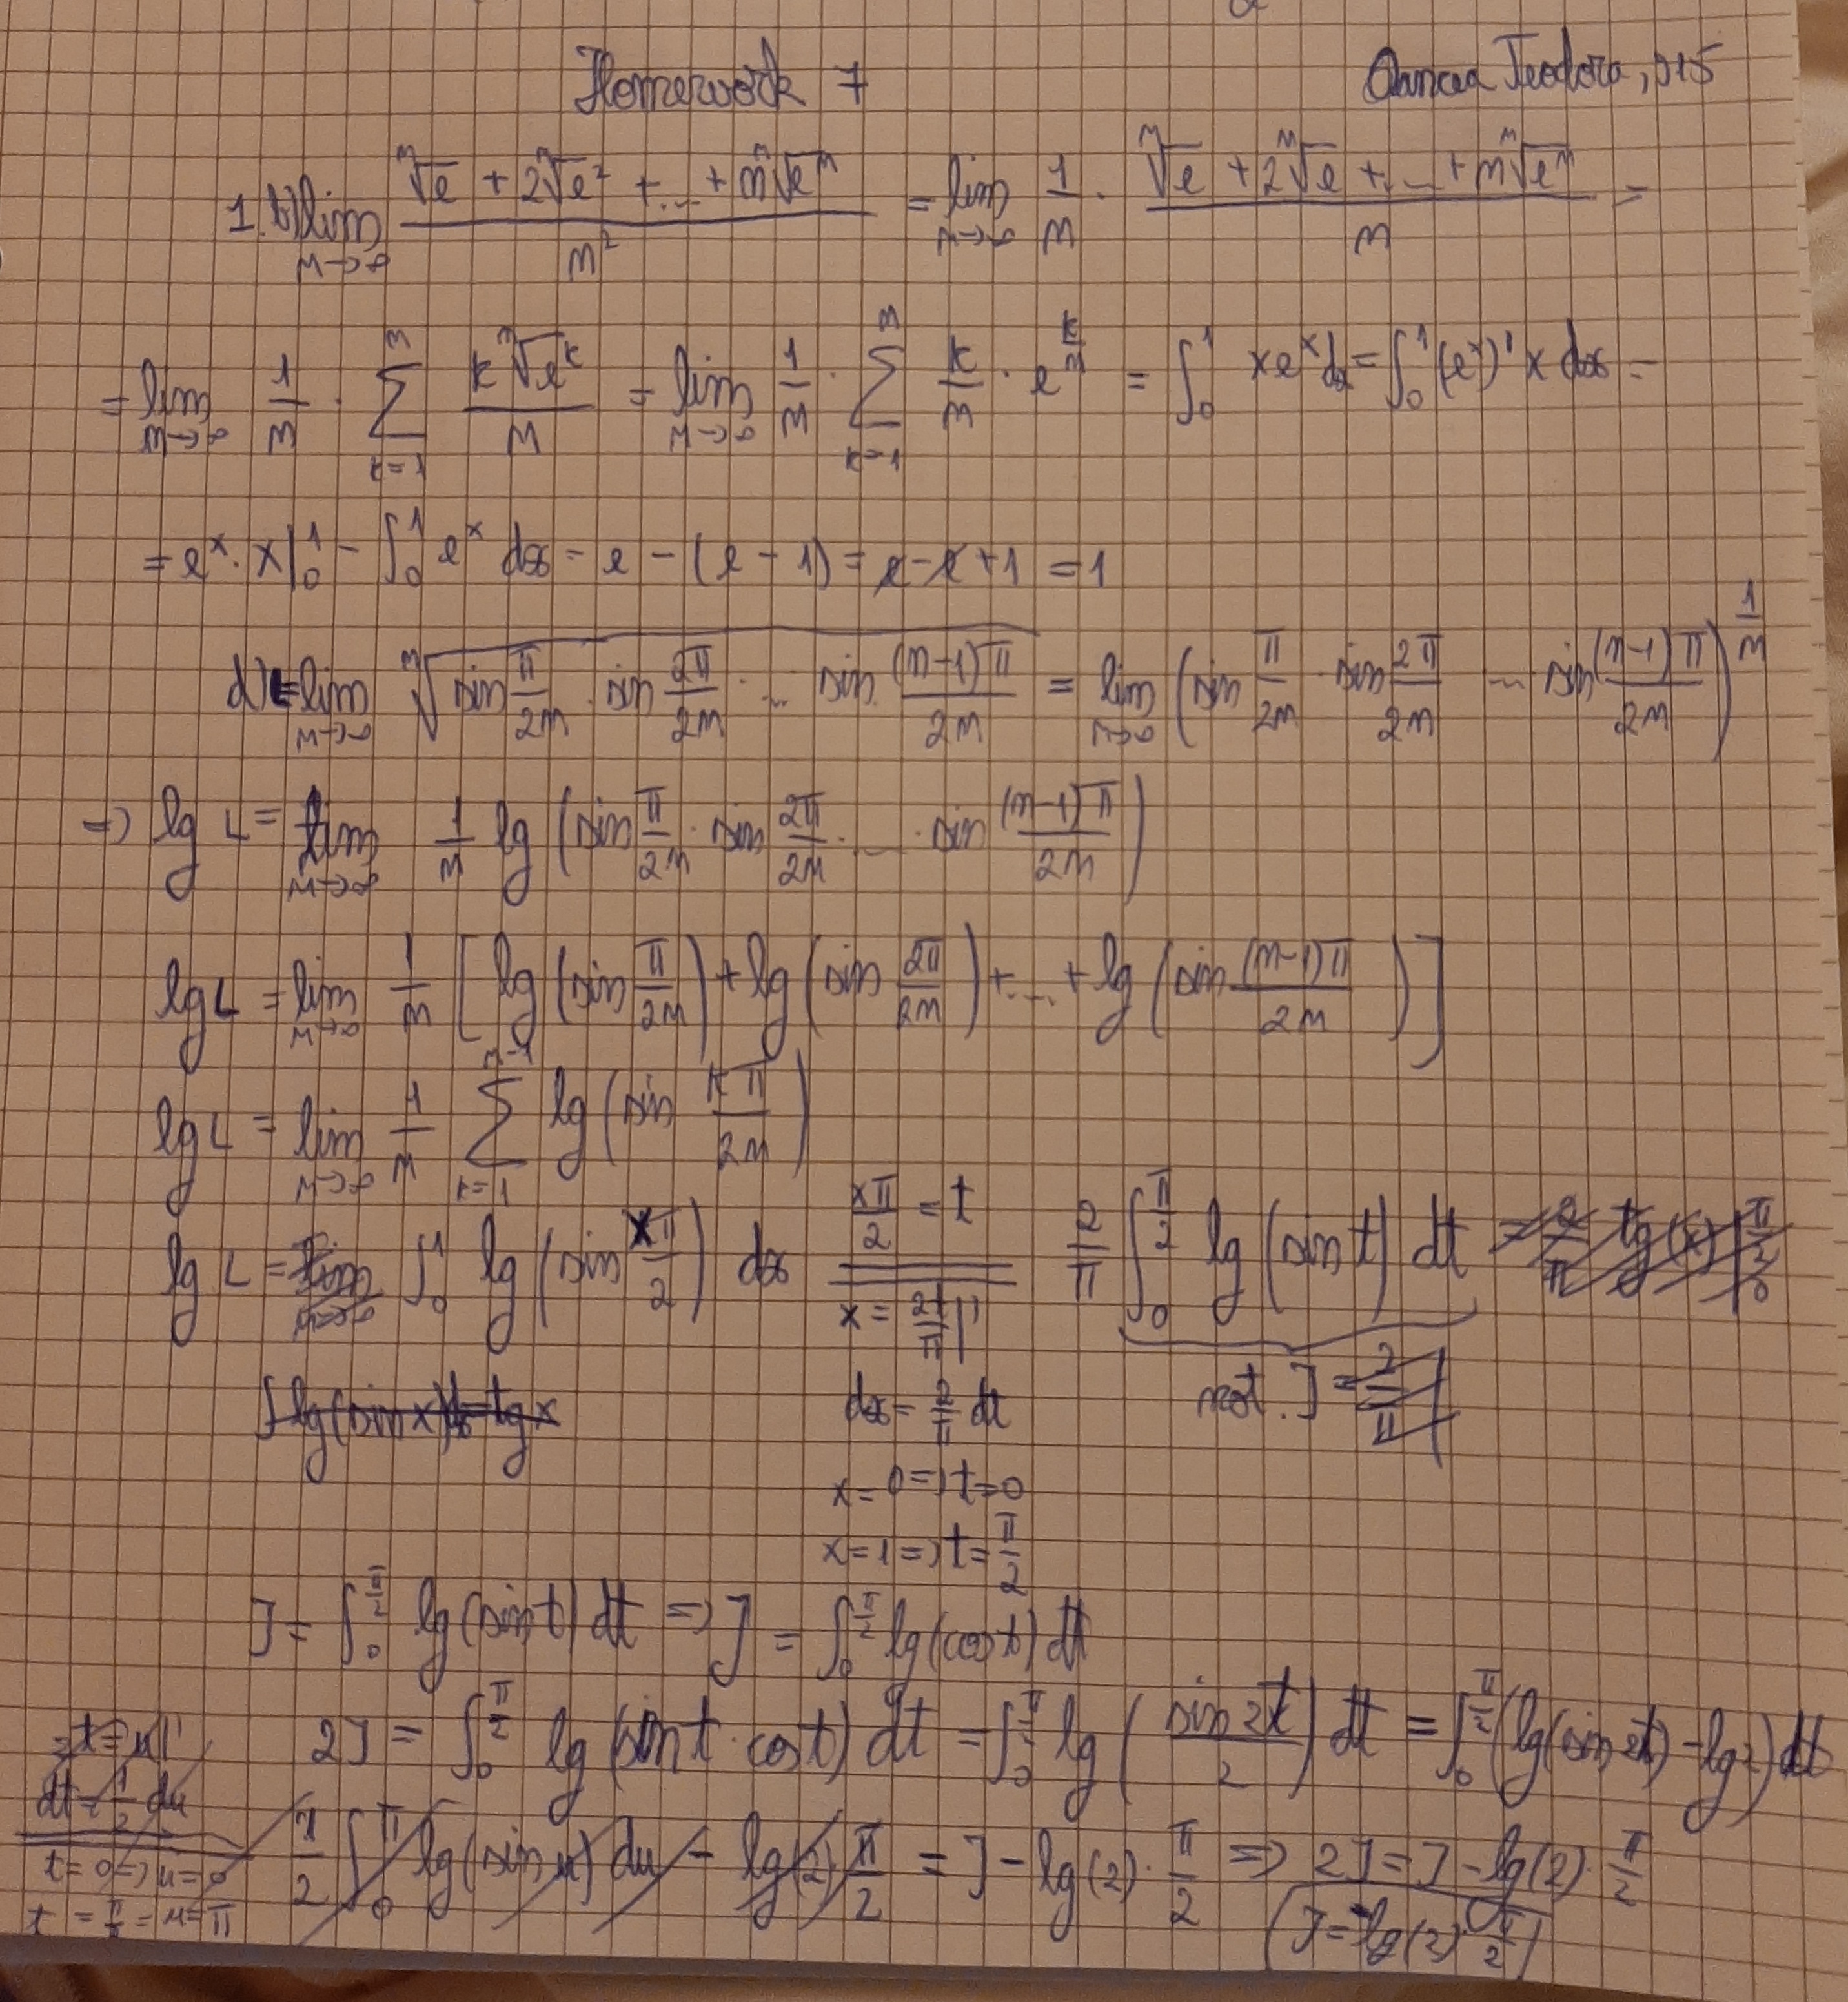 Homework 7
Oancea Teodora, 915
1. b) lim_{n→∞} (ⁿ√e + 2ⁿ√e² + ... + nⁿ√eⁿ)/n² = lim_{n→∞} 1/n · (ⁿ√e + 2ⁿ√e + ... + nⁿ√eⁿ)/n =
= lim_{n→∞} 1/n · Σ_{k=1}^{n} (k ⁿ√e^k)/n = lim_{n→∞} 1/n · Σ_{k=1}^{n} k/n · e^{k/n} = ∫₀¹ x e^x dx = ∫₀¹ (e^x)' x dx =
= e^x · x |₀¹ - ∫₀¹ e^x dx = e - (e - 1) = e - e + 1 = 1
d) L = lim_{n→∞} ⁿ√(sin π/2n · sin 2π/2n · ... sin (n-1)π/2n) = lim_{n→∞} (sin π/2n · sin 2π/2n ... sin (n-1)π/2n)^{1/n}
=> lg L = lim_{n→∞} 1/n lg (sin π/2n · sin 2π/2n · ... · sin (n-1)π/2n)
lg L = lim_{n→∞} 1/n [lg (sin π/2n) + lg (sin 2π/2n) + ... + lg (sin (n-1)π/2n)]
lg L = lim_{n→∞} 1/n Σ_{k=1}^{n-1} lg (sin kπ/2n)
lg L = lim_{n→∞} ∫₀¹ lg (sin xπ/2) dx = 2/π ∫₀^{π/2} lg (sin t) dt = 2/π tg (x) |₀^{π/2}
xπ/2 = t
x = 2t/π |'
∫ lg (sin x) dx = tg x
dx = 2/π dt
not. J = 2/π
x = 0 => t = 0
x = 1 => t = π/2
J = ∫₀^{π/2} lg (sin t) dt => J = ∫₀^{π/2} lg (cos t) dt
2J = ∫₀^{π/2} lg (sin t · cos t) dt = ∫₀^{π/2} lg (sin 2t / 2) dt = ∫₀^{π/2} (lg (sin 2t) - lg 2) dt
2t = u |'
dt = 1/2 du
t = 0 => u = 0
t = π/2 = u = π
1/2 ∫₀^π lg (sin u) du - lg (2) π/2 = J - lg (2) · π/2 => 2J = J - lg (2) · π/2
J = -lg (2) · π/2